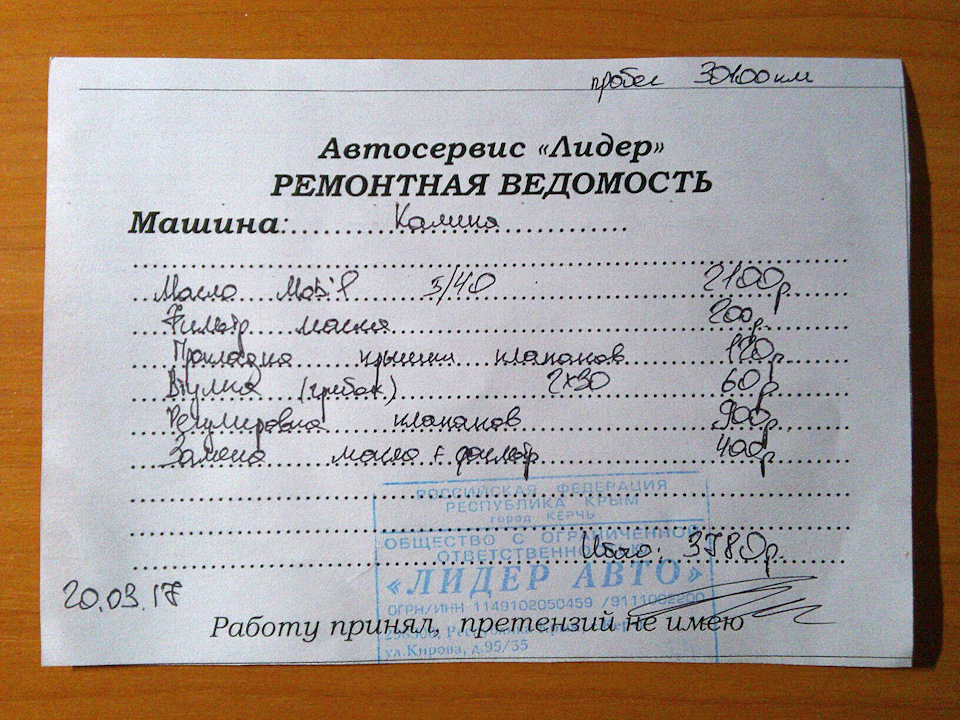 пробег 30100 км
Автосервис «Лидер»
РЕМОНТНАЯ ВЕДОМОСТЬ
Машина: Калина
Масло Mobil 5/40 2100р
Фильтр масла 200р.
Прокладка крышки клапанов 120р.
Втулка (грибок) 2х30 60р
Регулировка клапанов 900р.
Замена масло + фильтр 400р
РОССИЙСКАЯ ФЕДЕРАЦИЯ
РЕСПУБЛИКА КРЫМ
город КЕРЧЬ
ОБЩЕСТВО С ОГРАНИЧЕННОЙ
ОТВЕТСТВЕННОСТЬЮ
Итого: 3780р.
«ЛИДЕР АВТО»
20.03.17
ОГРН/ИНН 1149102050459 /9111002200
Работу принял, претензий не имею
Республика
ул.Кирова, д.95/35